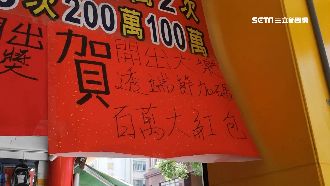 SETN 三立新聞網
次 2次
200萬 100萬
出
獎
賀
開出大樂
透端節加碼
百萬大紅包